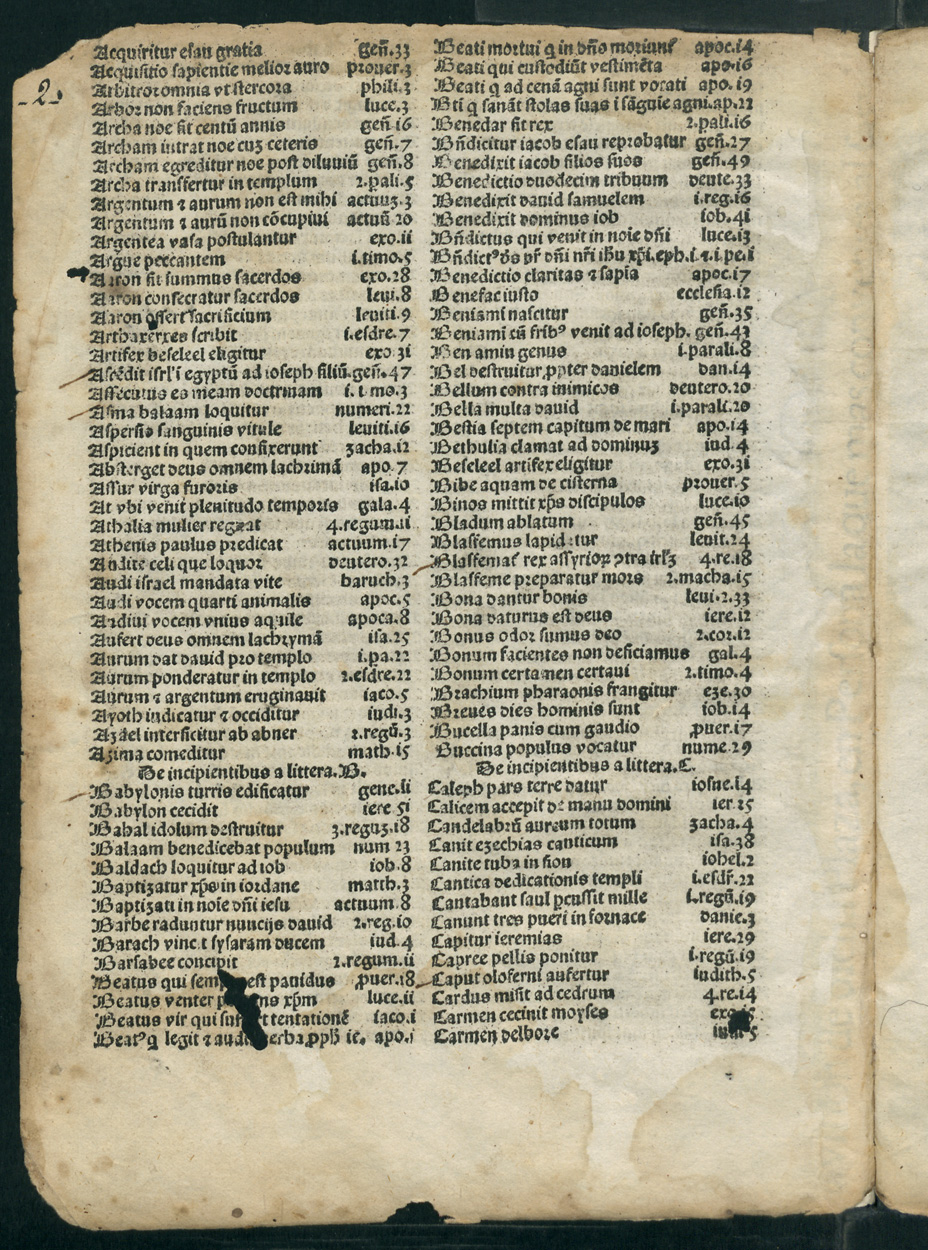 -2-
Acquiritur esau gratia geñ.33
Acquisitio sapientie melior auro prouer.3
Arbitror omnia vt stercora phili.3
Arbor non faciens fructum luce.3
Archa noe fit centũ annis geñ.i6
Archam intrat noe cuʒ ceteris geñ.7
Archam egreditur noe post diluuiũ geñ.8
Archa transfertur in templum 2.pali.5
Argentum ⁊ aurum non est mihi actuuʒ.3
Argentum ⁊ aurũ non cõcupiui actuũ 20
Argentea vasa postulantur exo.ii
Argue peccantem i.timo.5
Aaron fit summus sacerdos exo.28
Aaron consecratur sacerdos leui.8
Aaron offert sacrificium leuiti.9
Arthaxerxes scribit i.esdre.7
Artifex beseleel eligitur exo.3i
Ascẽdit isrl'i egyptũ ad ioseph filiũ.geñ.47
Assecutus es meam doctrinam i.timo.3
Asina balaam loquitur numeri.22
Aspersio sanguinis vitule leuiti.i6
Aspicient in quem confixerunt zacha.i2
Absterget deus omnem lachrimã apo.7
Assur virga furoris isa.i0
At vbi venit plenitudo temporis gala.4
Athalia mulier regnat 4.regum.ii
Athenis paulus predicat actuum.i7
Audite celi que loquor deutero.32
Audi israel mandata vite baruch.3
Audi vocem quarti animalis apoc.5
Audiui vocem vnius aquile apoca.8
Aufert deus omnem lachrymã isa.25
Aurum dat dauid pro templo i.pa.22
Aurum ponderatur in templo 2.esdre.22
Aurum ⁊ argentum eruginauit iaco.5
Ayoth iudicatur ⁊ occiditur iudi.3
Azael interficitur ab abner 2.regũ.3
Azima comeditur math.i5
De incipientibus a littera.B.
Babylonis turris edificatur gene.ii
Babylon cecidit iere 5i
Bahal idolum destruitur 3.reguʒ.i8
Balaam benedicebat populum num 23
Baldach loquitur ad iob iob.8
Baptizatur xp̃s in iordane matth.3
Baptizati in noie dñi iesu actuum.8
Barbe raduntur nuncijs dauid 2.reg.i0
Barach vincit sysaram ducem iud.4
Barsabee concipit 2.regum.ii
Beatus qui semp est pauidus ꝓuer.i8
Beatus venter xp̃m luce.ii
Beatus vir qui suffert tentationẽ iaco.i
Beatꝰ q legit ⁊ audit verba ꝓph ie. apo.i
Beati mortui q in dño moriunť apoc.i4
Beati qui custodiũt vestimẽta apo.i6
Beati q ad cenã agni sunt vocati apo.i9
Bti q sanãt stolas suas i sãguie agni.ap.22
Benedar fit rex 2.pali.i6
Bñdicitur iacob esau reprobatur geñ.27
Benedixit iacob filios suos geñ.49
Benedictio duodecim tribuum deute.33
Benedixit dauid samuelem i.reg.i6
Benedixit dominus iob iob.4i
Bñdictus qui venit in noie dñi luce.i3
Bñdictꝰ d̃s pr̃ dñi nr̃i ihũ xp̃i.eph.i.⁊.i.pe.i
Benedictio claritas ⁊ sapia apoc.i7
Benefac iusto ecclesia.i2
Beniami nascitur geñ.35
Beniami cũ fribꝰ venit ad ioseph. geñ.43
Ben amin genus i.parali.8
Bel destruitur ꝓpter danielem dan.i4
Bellum contra inimicos deutero.20
Bella multa dauid i.parali.20
Bestia septem capitum de mari apo.i4
Bethulia clamat ad dominuʒ iud.4
Beseleel artifex eligitur exo.3i
Bibe aquam de cisterna prouer.5
Binos mittit xp̃s discipulos luce.i0
Bladum ablatum geñ.45
Blasfemus lapidatur leuit.24
Blasfemať rex assyrioꝝ ↄtra isrl'ʒ 4.re.i8
Blasfeme preparatur mors 2.macha.i5
Bona dantur bonis leui.2.33
Bona daturus est deus iere.i2
Bonus odor sumus deo 2.cor.i2
Bonum facientes non deficiamus gal.4
Bonum certamen certaui 2.timo.4
Brachium pharaonis frangitur eze.30
Breues dies hominis sunt iob.i4
Bucella panis cum gaudio ꝓuer.i7
Buccina populus vocatur nume.29
De incipientibus a littera.C.
Caleph pars terre datur iosue.i4
Calicem accepit de manu domini ier.25
Candelabrũ aureum totum zacha.4
Canit ezechias canticum isa.38
Canite tuba in sion iohel.2
Cantica dedicationis templi i.esdr̃.22
Cantabant saul ꝑcussit mille i.regũ.i9
Canunt tres pueri in fornace danie.3
Capitur ieremias iere.29
Capree pellis ponitur i.regũ.i9
Caput oloferni aufertur iudith.5
Cardus misit ad cedrum 4.re.i4
Carmen cecinit moyses exo.i5
Carmen delbore iudi.5